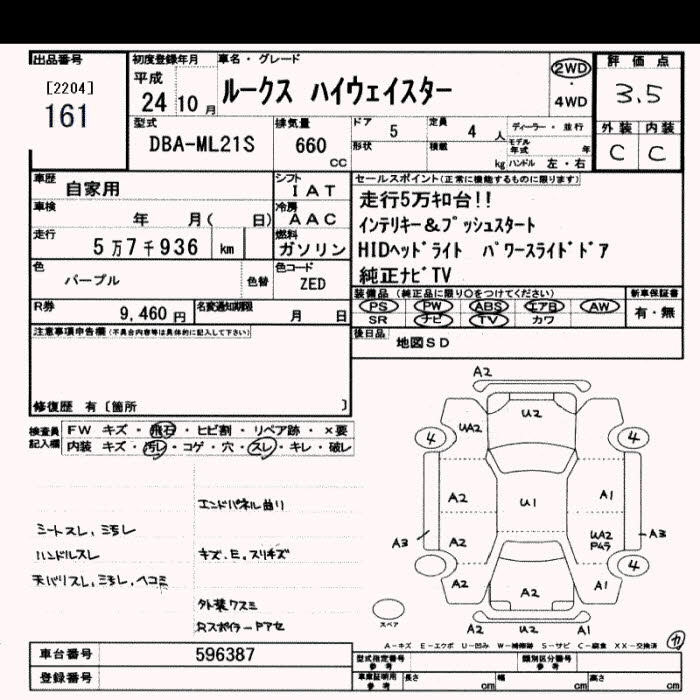 出品番号
[2204]
161
初度登録年月
平成
24 10月
車名・グレード
ルークス ハイウェイスター
2WD
・
4WD
評価点
3.5
外装 内装
C C
型式
DBA-ML21S
排気量
660
CC
ドア 5
定員 4 人
形状
積載 kg
ディーラー・並行
モデル年式 年
ハンドル 左・右
車歴 自家用
シフト IAT
車検 年 月( 日)
冷房 AAC
走行 5万7千936 km
燃料 ガソリン
色 パープル
色替
色コード ZED
R券 9,460円
名変通知期限 月 日
セールスポイント(正常に機能するものに限ります)
走行5万キロ台!!
インテリキー&プッシュスタート
HIDヘッドライト パワースライドドア
純正ナビTV
装備品(純正品に限り○をつけてください)
PS PW ABS エアB AW
SR ナビ TV カワ
新車保証書
有・無
後日品 地図SD
注意事項申告欄(不具合内容等は具体的に記入して下さい)
修復歴 有〔箇所 〕
検査員記入欄
FW キズ・飛石・ヒビ割・リペア跡・×要
内装 キズ・汚レ・コゲ・穴・スレ・キレ・破レ
エンドパネル曲り
シートスレ,ヨゴレ
ハンドルスレ
キズ.E.スリキズ
天バリスレ,ヨゴレ,ヘコミ
外装クスミ
RスポイラーPアセ
A2
U2
UA2
4
4
A2
U1
A1
A3
A2
UA2
Pムラ
A3
4
A2
A2
A1
U2
A2 U1
スペア
A−キズ E−エクボ U−凹み W−補修跡 S−サビ C−腐食 XX−交換済
カ
車台番号 596387
登録番号
型式指定番号 参考
類別区分番号 参考
車庫証明用 参考
長さ cm
幅 cm
高さ cm